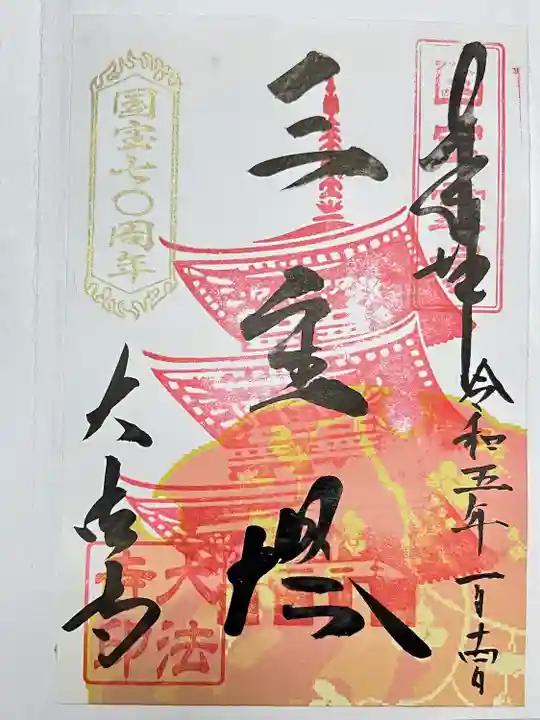 奉拝
令和五年一月十四日
三重塔
国宝七〇周年
大法寺
大法
寺印